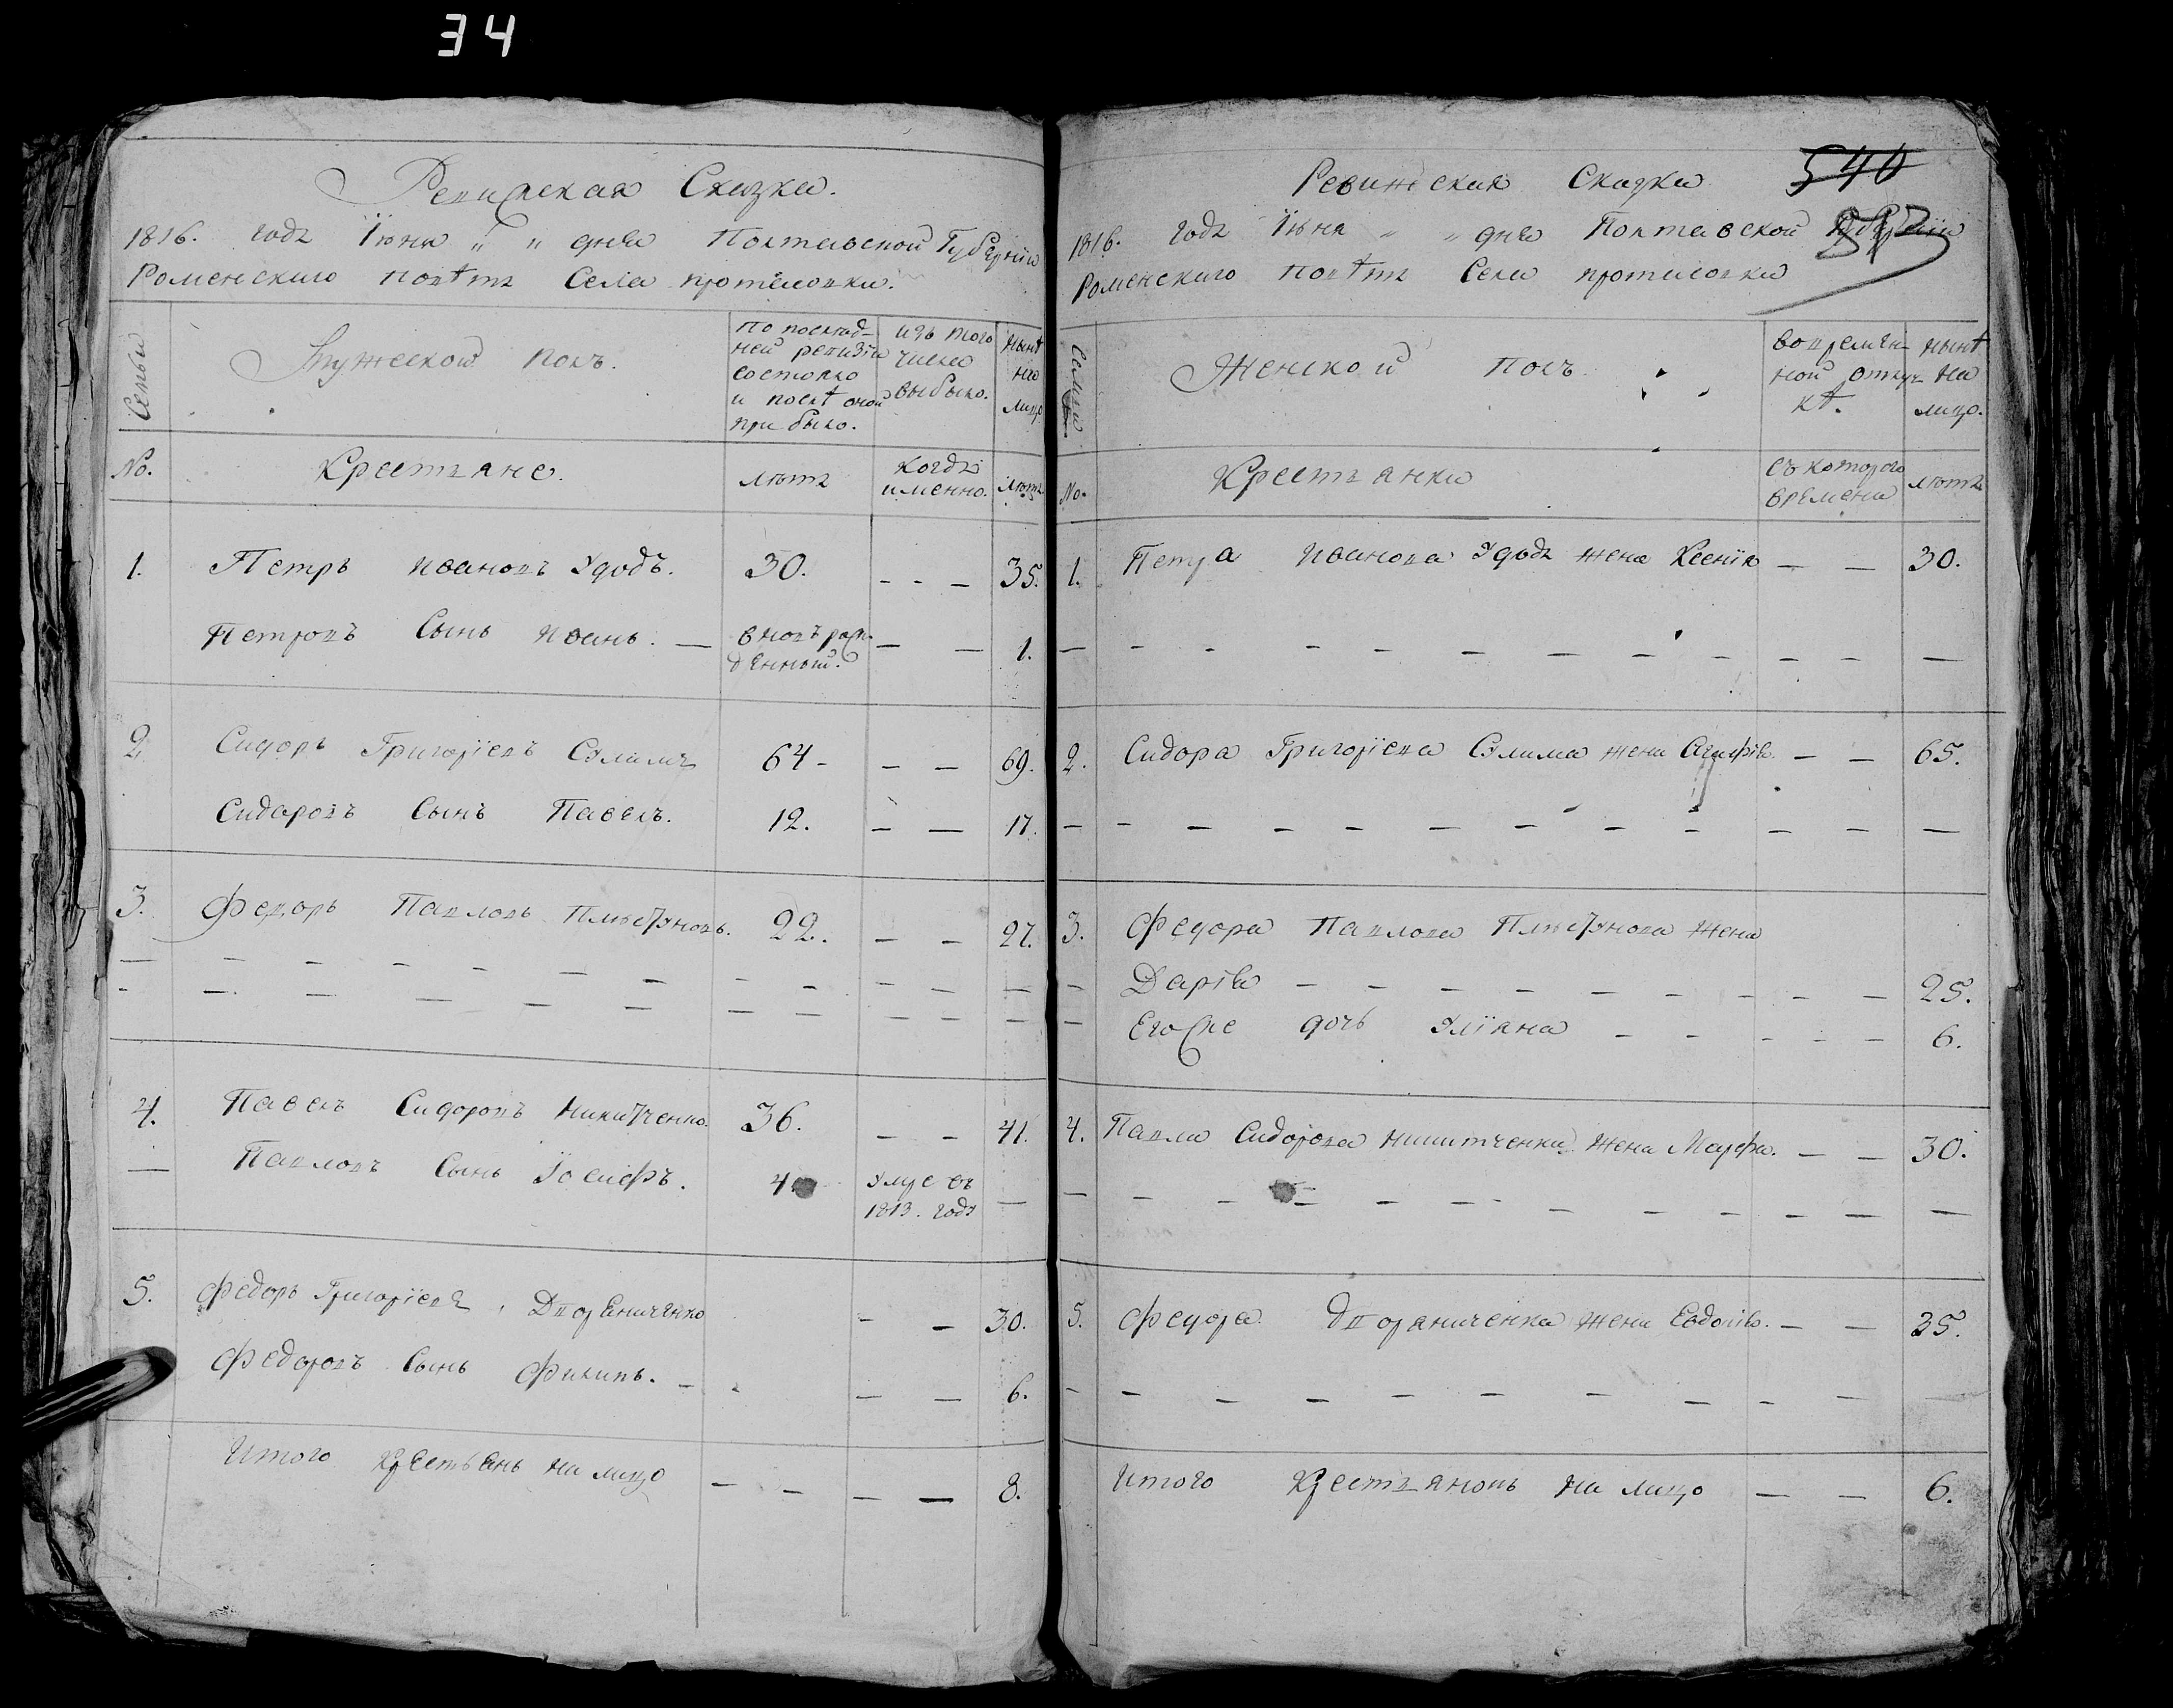 34
Ревижская Сказка.
1816. года Їюня „ „ дня Полтавской Губерніи
Роменского повѣта Села протасовки.
Семьи
Мужеской полъ.
по послѣд-
ней ревизіи
состояло
и послѣ оной
прибыло.
изъ того
числа
выбыло.
нынѣ
на
лицо
No.
Крестяне.
лѣта
когда
именно.
лѣта
1. Петръ Ивановъ Удодъ. 30. - - - 35.
Петровъ Сынъ Иванъ. — вновърож-
денный. — — 1.
2 Сидоръ Григоріевъ Сулима 64 - — — 69.
Сидоровъ Сынъ Павелъ. 12. — — 17.
3. Федоръ Павловъ Плѣтуновъ. 22. — — 27.
4. Павелъ Сидоровъ Никитченко. 36. — — 41.
— Павловъ Сынъ Їосифъ. 4. Умре въ
1813. году —
5. Федоръ Григоріевъ Двораниченко — — 30.
Федоровъ Сынъ Филипъ. — — — 6.
Итого Крестьянъ на лицо — — — — 8.
Ревижская Сказка
540
1816. года Їюня „ „ дня Полтавской Губерніи
Роменского повѣта Села протасовки
Семьи
Женской полъ
вовремен-
ной отлуч-
кѣ.
нынѣ
на
лицо.
No.
Крестянки
съ которого
времени
лѣта
1. Петра Иванова Удода жена Ксенія — — 30.
2. Сидора Григоріева Сулима жена Агафія — — 65.
3. Федора Павлова Плѣтунова жена
Дарія — — — — — — — — — 25.
Егоже дочь Уліяна — — — — — 6.
4. Павла Сидорова Никитченка жена Марфа. — — 30.
5. Федора Двораниченка жена Евдокія. — — 25.
Итого Крестянокъ на лицо — — 6.